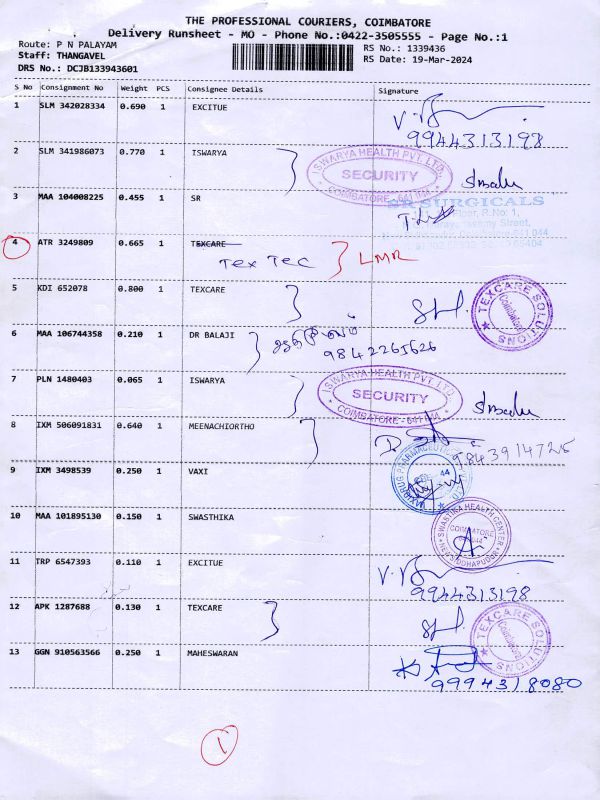 THE PROFESSIONAL COURIERS, COIMBATORE
Delivery Runsheet - MO - Phone No.:0422-3505555 - Page No.:1
Route: P N PALAYAM
Staff: THANGAVEL
DRS No.: DCJB133943601
RS No.: 1339436
RS Date: 19-Mar-2024
S No Consignment No Weight PCS Consignee Details Signature
1 SLM 342028334 0.690 1 EXCITUE
9944313198
2 SLM 341986073 0.770 1 ISWARYA
ISWARYA HEALTH PVT. LTD.
SECURITY
COIMBATORE - 641 044
3 MAA 104008225 0.455 1 SR
SR SURGICALS
4 ATR 3249809 0.665 1 TEXCARE
Tex Tec LMR
5 KDI 652078 0.800 1 TEXCARE
TEXCARE SOLUTIONS
Coimbatore
6 MAA 106744358 0.210 1 DR BALAJI
9842265626
7 PLN 1480403 0.065 1 ISWARYA
ISWARYA HEALTH PVT. LTD.
SECURITY
COIMBATORE - 641 044
8 IXM 506091831 0.640 1 MEENACHIORTHO
9843914725
9 IXM 3498539 0.250 1 VAXI
10 MAA 101895130 0.150 1 SWASTHIKA
SWASTIKA HEALTH CENTER
COIMBATORE
641 044
11 TRP 6547393 0.110 1 EXCITUE
9944313198
12 APK 1287688 0.130 1 TEXCARE
TEXCARE SOLUTIONS
Coimbatore
13 GGN 910563566 0.250 1 MAHESWARAN
9994318080
1